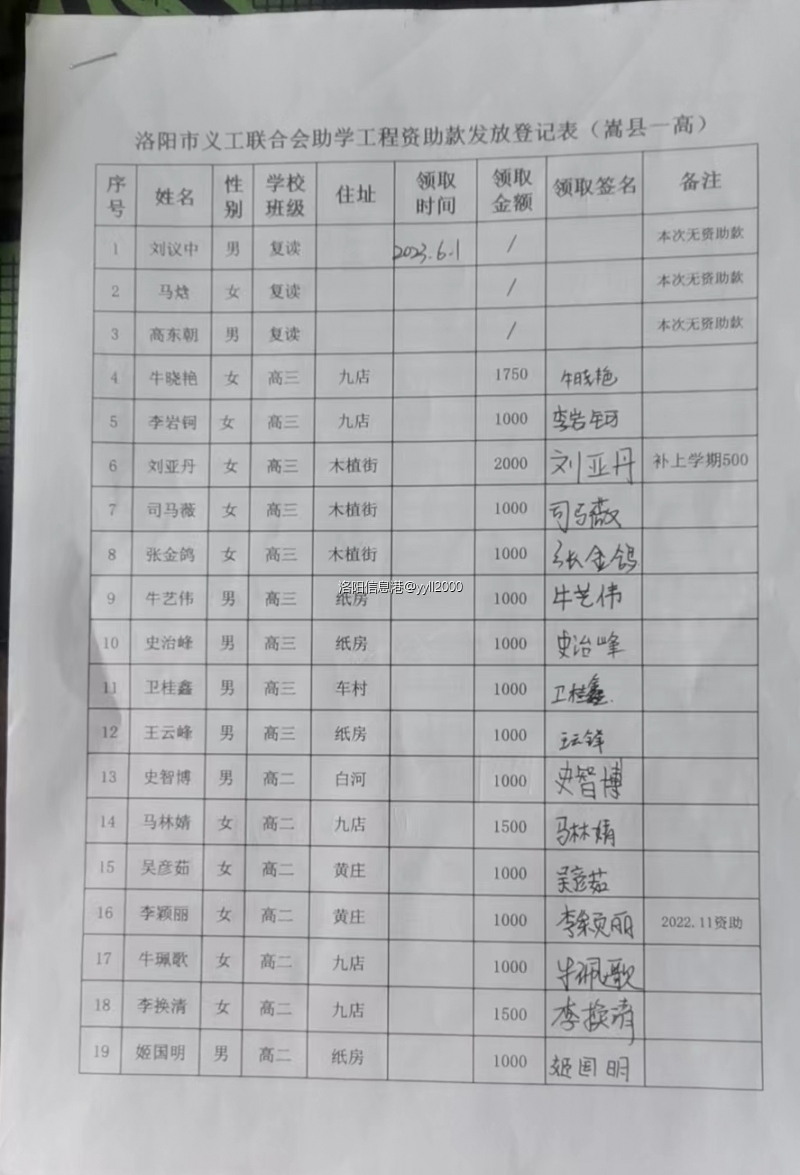 洛阳市义工联合会助学工程资助款发放登记表（嵩县一高）
序号 姓名 性别 学校班级 住址 领取时间 领取金额 领取签名 备注
1 刘议中 男 复读 2023.6.1 / 本次无资助款
2 马焓 女 复读 / 本次无资助款
3 高东朝 男 复读 / 本次无资助款
4 牛晓艳 女 高三 九店 1750 牛晓艳
5 李岩钶 女 高三 九店 1000 李岩钶
6 刘亚丹 女 高三 木植街 2000 刘亚丹 补上学期500
7 司马薇 女 高三 木植街 1000 司马薇
8 张金鸽 女 高三 木植街 1000 张金鸽
洛阳信息港@yyll2000
9 牛艺伟 男 高三 纸房 1000 牛艺伟
10 史治峰 男 高三 纸房 1000 史治峰
11 卫桂鑫 男 高三 车村 1000 卫桂鑫.
12 王云峰 男 高三 纸房 1000 王云锋
13 史智博 男 高二 白河 1000 史智博
14 马林婧 女 高二 九店 1500 马林婧
15 吴彦茹 女 高二 黄庄 1000 吴彦茹
16 李颖丽 女 高二 黄庄 1000 李颖丽 2022.11资助
17 牛珮歌 女 高二 九店 1000 牛珮歌
18 李换清 女 高二 九店 1500 李换清
19 姬国明 男 高二 纸房 1000 姬国明